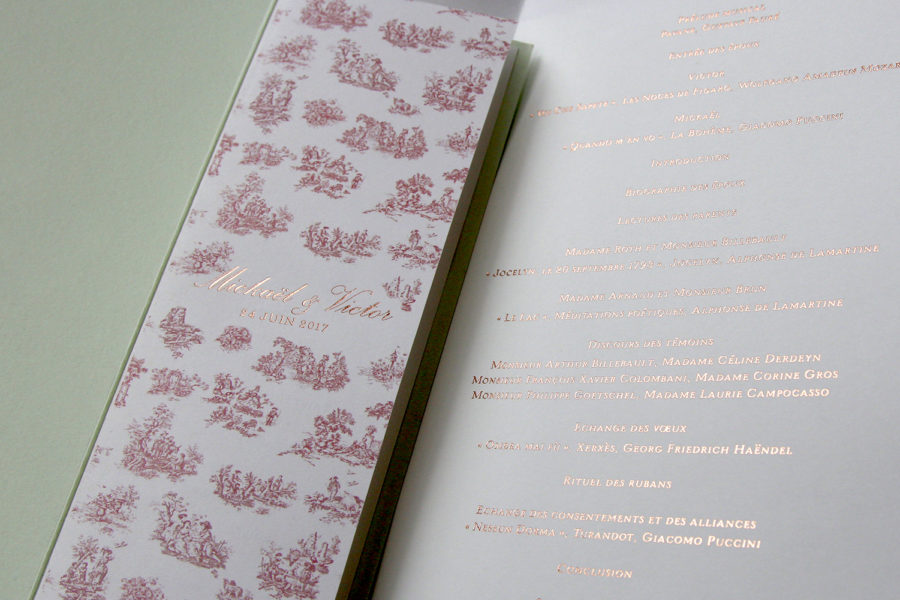 Mickaël & Victor
24 JUIN 2017
Prélude musical
Pavane, Gabriel Fauré
Entrée des époux
Victor
« Voi che sapete », Les Noces de Figaro, Wolfgang Amadeus Mozar
Mickaël
« Quando m'en vo », La Bohème, Giacomo Puccini
Introduction
Biographie des époux
Lectures des parents
Madame Roth et Monsieur Billebault
« Jocelyn, le 26 septembre 1793 », Jocelyn, Alphonse de Lamartine
Madame Arnaud et Monsieur Brun
« Le Lac », Méditations poétiques, Alphonse de Lamartine
Discours des témoins
Monsieur Arthur Billebault, Madame Céline Derdeyn
Monsieur François Xavier Colombani, Madame Corine Gros
Monsieur Philippe Goetschel, Madame Laurie Campocasso
Echange des vœux
« Ombra mai fu », Xerxès, Georg Friedrich Haëndel
Rituel des rubans
Echange des consentements et des alliances
« Nessun Dorma », Turandot, Giacomo Puccini
Conclusion